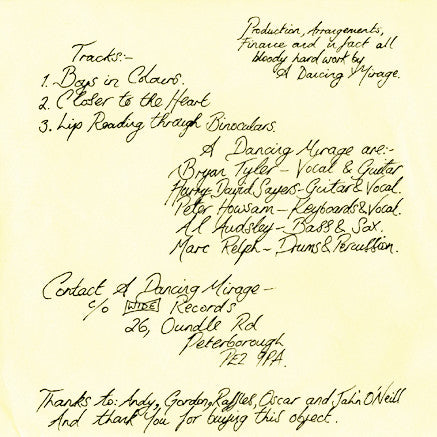 Production, Arrangements,
Finance and in fact all
bloody hard work by
A Dancing Mirage.
Tracks:-
1. Boys in Colours.
2. Closer to the Heart
3. Lip Reading through Binoculars.
A Dancing Mirage are:-
Bryan Tyler - Vocal & Guitar
Harry David Sayers - Guitar & Vocal.
Peter Howsam - Keyboards & Vocal.
Al Audsley - Bass & Sax.
Marc Relph - Drums & Percussion.
Contact A Dancing Mirage -
c/o WIDE Records
26, Oundle Rd
Peterborough
PE2 9PA.
Thanks to: Andy, Gordon, Raffles, Oscar and John O'Neill
And thank you for buying this object.